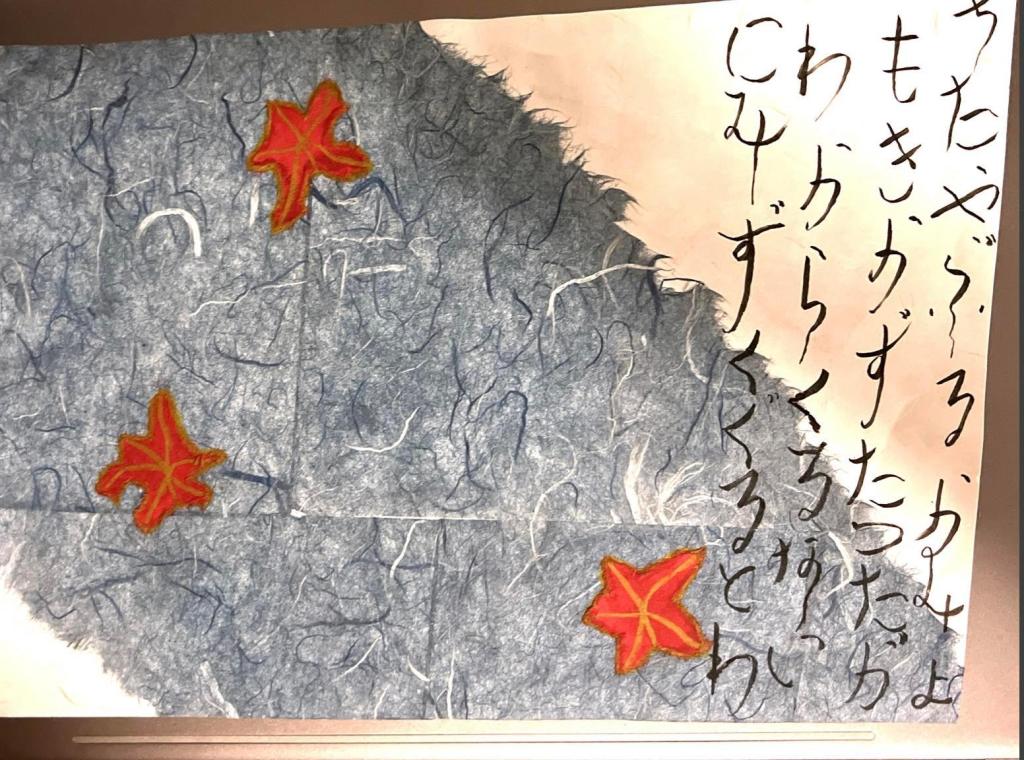 ちたやぶるかみよ
もきかずたつたが
わからくるない
にみずくぐるとわ